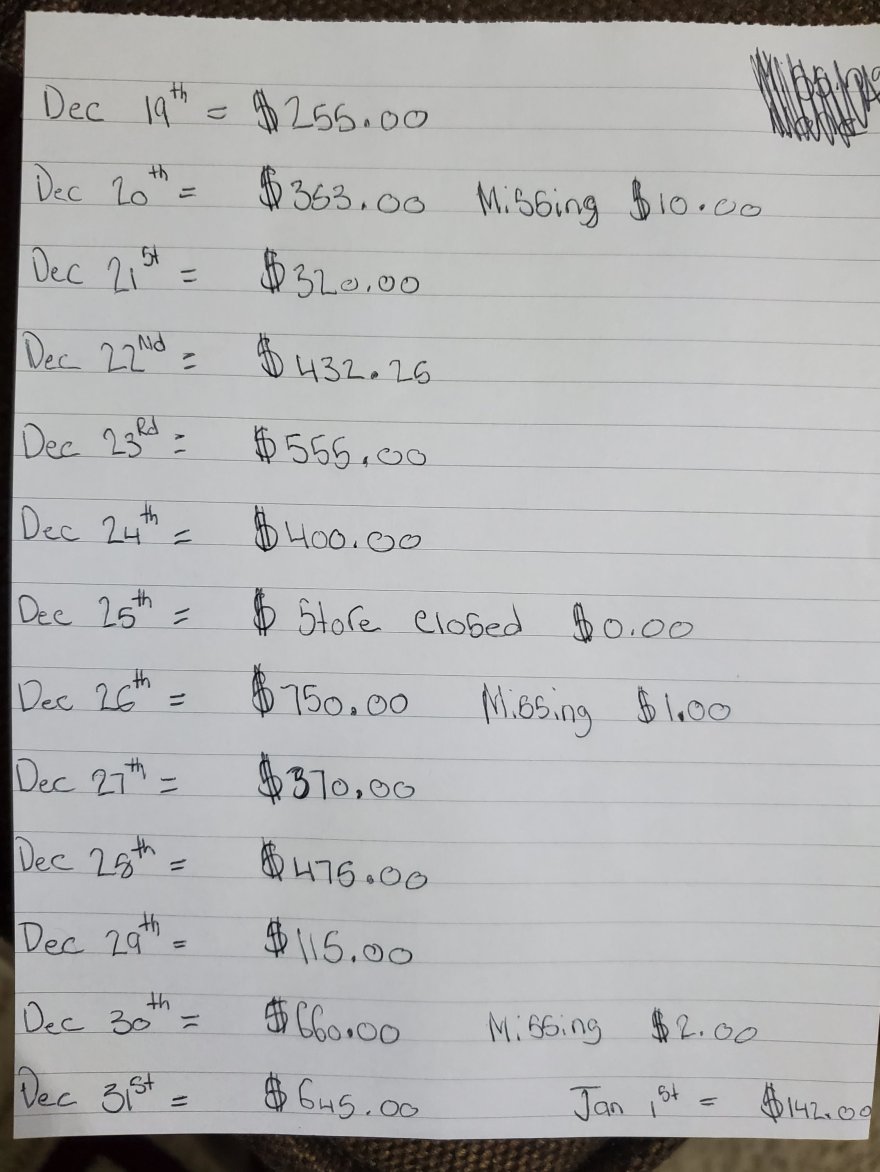 Dec 19th = $255.00
Dec 20th = $353.00 Missing $10.00
Dec 21st = $320.00
Dec 22Nd = $432.25
Dec 23Rd = $555.00
Dec 24th = $400.00
Dec 25th = $ Store closed $0.00
Dec 26th = $750.00 Missing $1.00
Dec 27th = $370.00
Dec 28th = $475.00
Dec 29th = $115.00
Dec 30th = $660.00 Missing $2.00
Dec 31st = $645.00 Jan 1st = $142.00